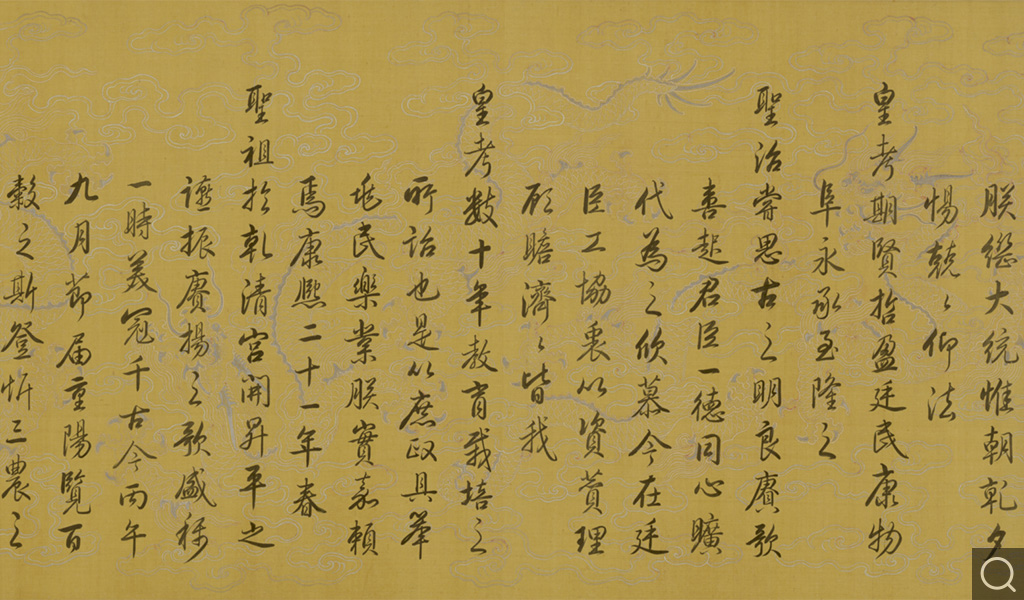 朕缵大统惟朝乹夕
惕兢〻仰法
皇考期賢哲盈廷民康物
阜永承至隆之
聖治嘗思古之明良賡歌
喜起君臣一德同心曠
代為之欣慕今在廷
臣工協衷以資贊理
顧瞻濟〻皆我
皇考數十年教育栽培之
所詒也是以庶政具舉
兆民樂業朕實嘉賴
焉康熙二十一年春
聖祖於乹清宮開昇平之
讌振賡揚之歌盛稱
一時美冠千古今丙午
九月莭届重陽覽百
穀之斯登忻三農之